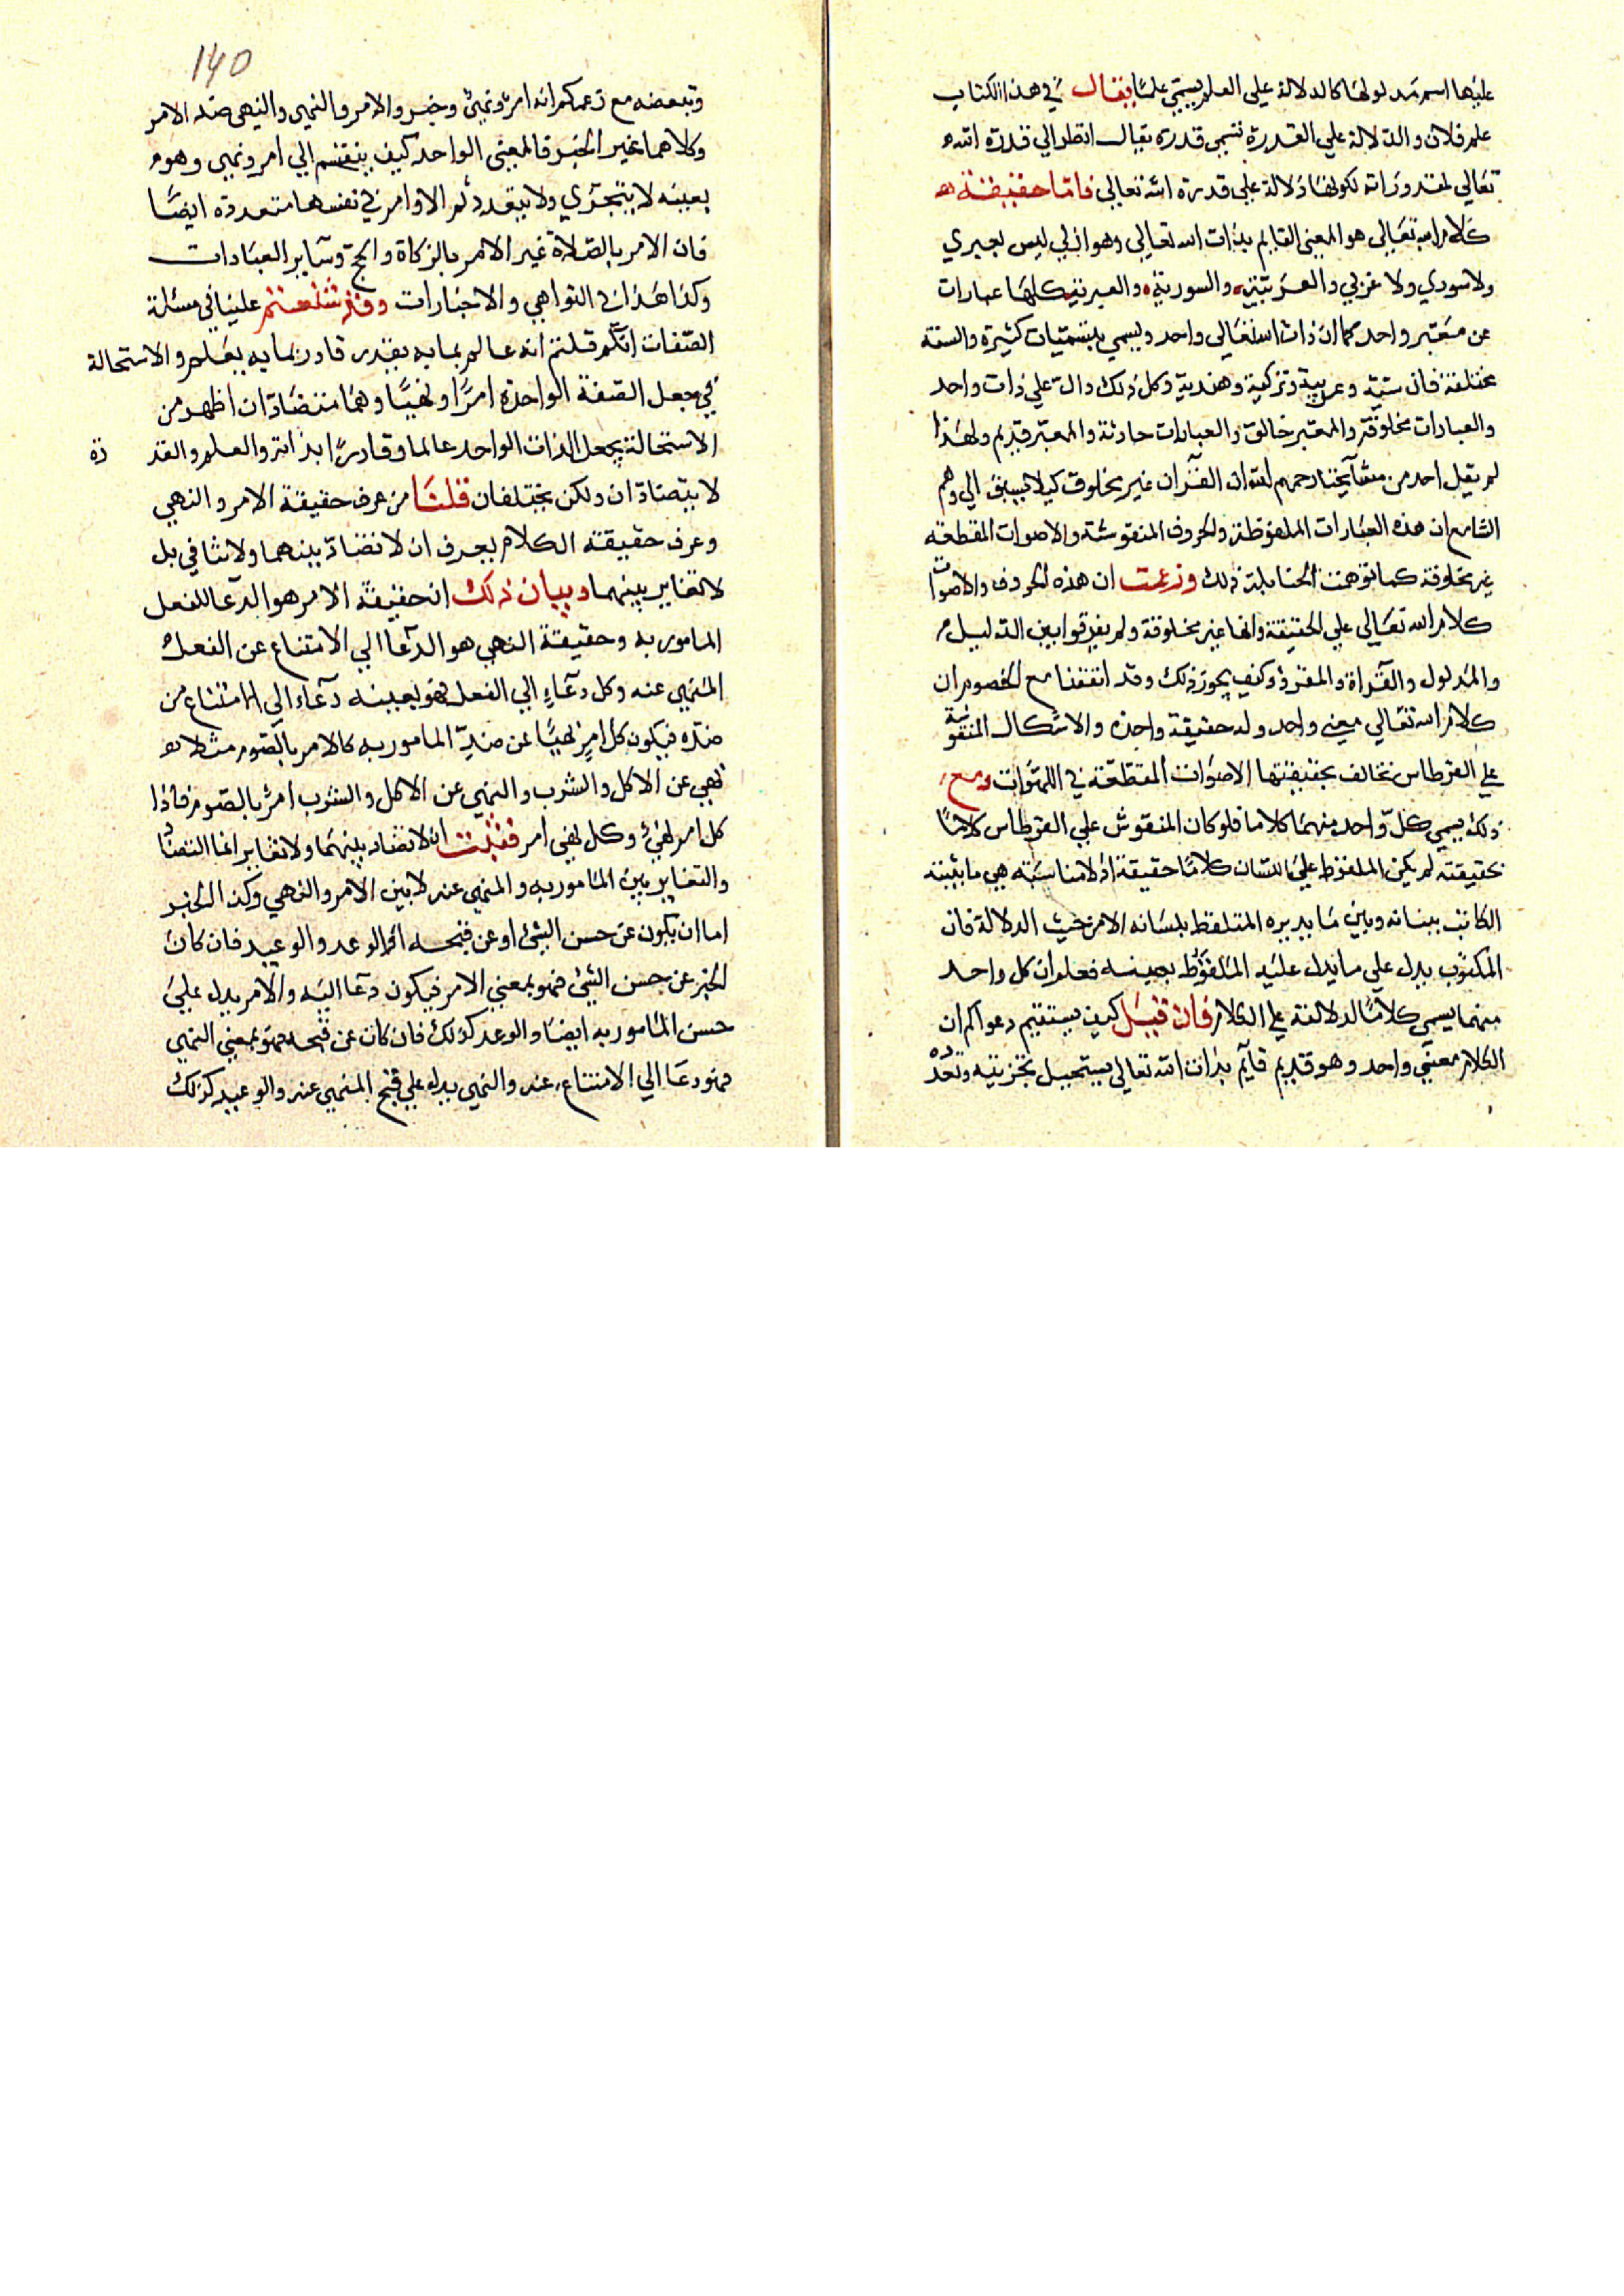 عليها اسم مدلولها كالدلالة علي العلم يسمي علما يقال في هذا الكتاب
علم فلان والدلالة علي القدرة تسمي قدرة يقال انظر الي قدرة الله
تعالي لمقدوراته لكونها دلالة علي قدرة الله تعالي فاما حقيقة
كلام الله تعالي هو المعني القايم بذات الله تعالي وهو ازلي ليس بعبري
ولا سوري ولا عربي والعربية والسورية والعبرية كلها عبارات
عن معبر واحد كما ان ذات الله تعالي واحد ويسمي بتسميات كثيرة والسنة
مختلفة فان ستية وعربية وتركية وهندية وكل ذلك دالة علي ذات واحد
والعبارات مخلوقة والمعبر خالق والعبارات حادثة والمعبر قديم ولهذا
لم يقل احد من مشآيخنا رحمهم الله ان القرآن غير مخلوق كيلا يسبق الي وهم
السامع ان هذه العبارات الملفوظة والحروف المنقوشة والاصوات المقطعة
غير مخلوقة كما توهمت الحنابلة ذلك وزعمت ان هذه الحروف والاصوات
كلام الله تعالي علي الحقيقة وانها غير مخلوقة ولم يفرقوا بين الدليل
والمدلول والقرآة والمقرؤ وكيف يجوز ذلك وقد اتفقنا مع الخصوم ان
كلام الله تعالي معني واحد وله حقيقة واحدة والاشكال المنقوشة
علي القرطاس تخالف بحقيقتها الاصوات المقطعة في اللهوات ومع
ذلك يسمي كل واحد منهما كلاما فلو كان المنقوش علي القرطاس كلاما
بحقيقته لم يكن الملفوظ علي اللسان كلاما حقيقة اذ لا مناسبة بين ما يثبته
الكاتب ببنانه وبين ما يديره المتلفظ بلسانه الا من حيث الدلالة فان
المكتوب يدل علي ما يدل عليه الملفوظ بعينه فعلم ان كل واحد
منهما يسمي كلاما لدلالته علي الكلام فان قيل كيف يستقيم دعواكم ان
الكلام معني واحد وهو قديم قآيم بذات الله تعالي يستحيل تجزيه وتعدده
140
وتبعضه مع زعمكم انه امر ونهي وخبر والامر والنهي والنهي ضد الامر
وكلاهما غير الخبر فالمعني الواحد كيف ينقسم الي امر ونهي وهو
بعينه لا يتجزي ولا يتعدد ثم الاوامر في نفسها متعددة ايضا
فان الامر بالصلاة غير الامر بالزكاة والحج وسآير العبادات
وكذا هذا في النواهي والاخبارات وقد شنعتم علينا في مسئلة
الصفات انكم قلتم انه عالم بما به يقدر قادر بما به يعلم والاستحالة
في جعل الصفة الواحدة امرا ونهيا وهما متضادان اظهر من
الاستحالة بجعل الذات الواحد عالما وقادرا بذاته والعلم والقدرة
لا يتضادان ولكن يختلفان قلنا من عرف حقيقة الامر والنهي
وعرف حقيقة الكلام يعرف ان لا تضاد بينهما ولا تنافي بل
لا تغاير بينهما وبيان ذلك ان حقيقة الامر هو الدعآ للفعل
المامور به وحقيقة النهي هو الدعآ الي الامتناع عن الفعل
المنهي عنه وكل دعآء الي الفعل فهو بعينه دعآء الي الامتناع من
ضده فيكون كل امر نهيا عن ضد المامور به كالامر بالصوم مثلا هو
نهي عن الاكل والشرب والنهي عن الاكل والشرب امر بالصوم فاذا
كل امر نهي وكل نهي امر فثبت ان لا تضاد بينهما ولا تغاير انما التضاد
والتغاير بين المامور به والمنهي عنه لا بين الامر والنهي وكذا الخبر
اما ان يكون عن حسن الشئ او عن قبحه او الوعد والوعيد فان كان
الخبر عن حسن الشئ فهو بمعني الامر فيكون دعآ اليه والامر يدل علي
حسن المامور به ايضا والوعد كذلك فان كان عن قبحه فهو بمعني النهي
فهو دعا الي الامتناع عنه والنهي يدل علي قبح المنهي عنه والوعيد كذلك